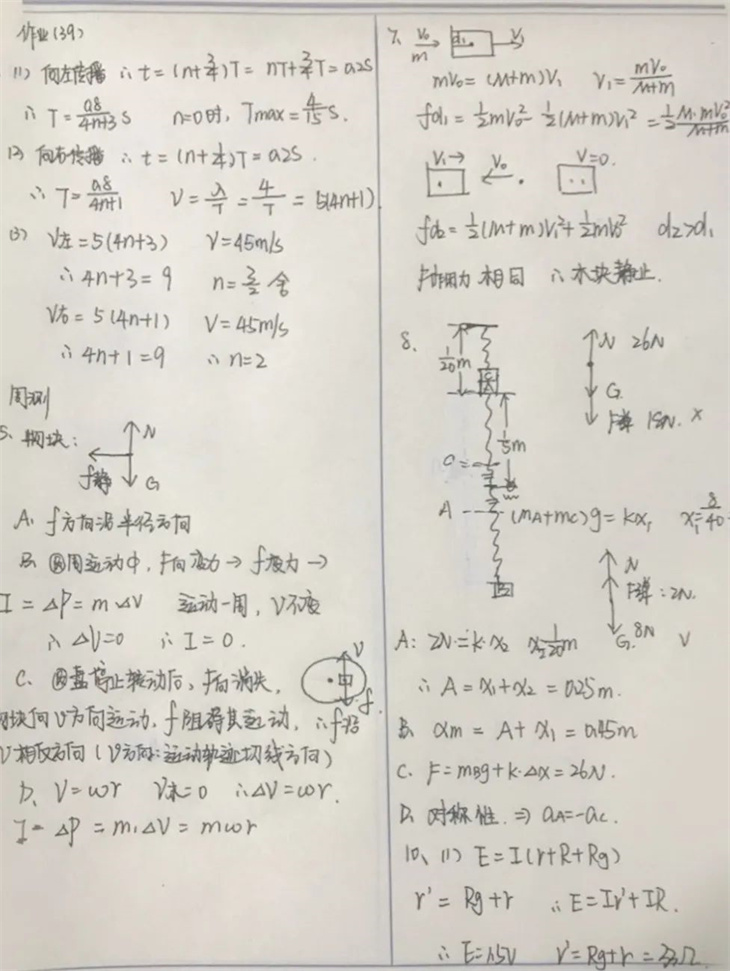 作业(39)
(1) 向左传播 ∴ t=(n+3/4)T = nT+3/4T=0.2S
∴ T=0.8/(4n+3) S n=0时, Tmax=4/15 S.
(2) 向右传播 ∴ t=(n+1/4)T=0.2S.
∴ T=0.8/(4n+1) V=λ/T=4/T=5(4n+1)
(3) V左=5(4n+3) V=45m/s
∴ 4n+3=9 n=3/2 舍
V右=5(4n+1) V=45m/s
∴ 4n+1=9 ∴ n=2
周测
5. 物块:
N
f静
G
A. f方向沿半径方向
B. 圆周运动中, F向变力→f变力→
I=ΔP=mΔV 运动一周, V不变
∴ ΔV=0 ∴ I=0.
C. 圆盘停止转动后, F向消失,
V
f
物块向V方向运动, f阻碍其运动, ∴f沿
V相反方向(V方向:运动轨迹切线方向)
D. V=ωr V末=0 ∴ΔV=ωr.
I=ΔP=m·ΔV=mωr
7. V0 m d1 V1
mV0=(M+m)V1 V1=mV0/(M+m)
fd1=1/2mV0²-1/2(M+m)V1²=1/2 M·mV0²/(M+m)
V1→ V0 V=0.
fd2=1/2(M+m)V1²+1/2mV0² d2>d1
相同 ∴木块静止.
8.
1/20m
N 26N
G
F弹 18N. ×
1/5m
A (mA+mC)g=kx1 x1=8/40
N
F弹:2N.
G. 8N V
A: 2N=k·x2 x2=1/20m
∴ A=x1+x2=0.25m.
B. xm=A+x1=0.45m
C. F=mBg+k·Δx=26N.
D. 对称性. ⇒ aA=-aC.
10. (1) E=I(r+R+Rg)
r'=Rg+r ∴E=Ir'+IR.
∴ E=1.5V r'=Rg+r=